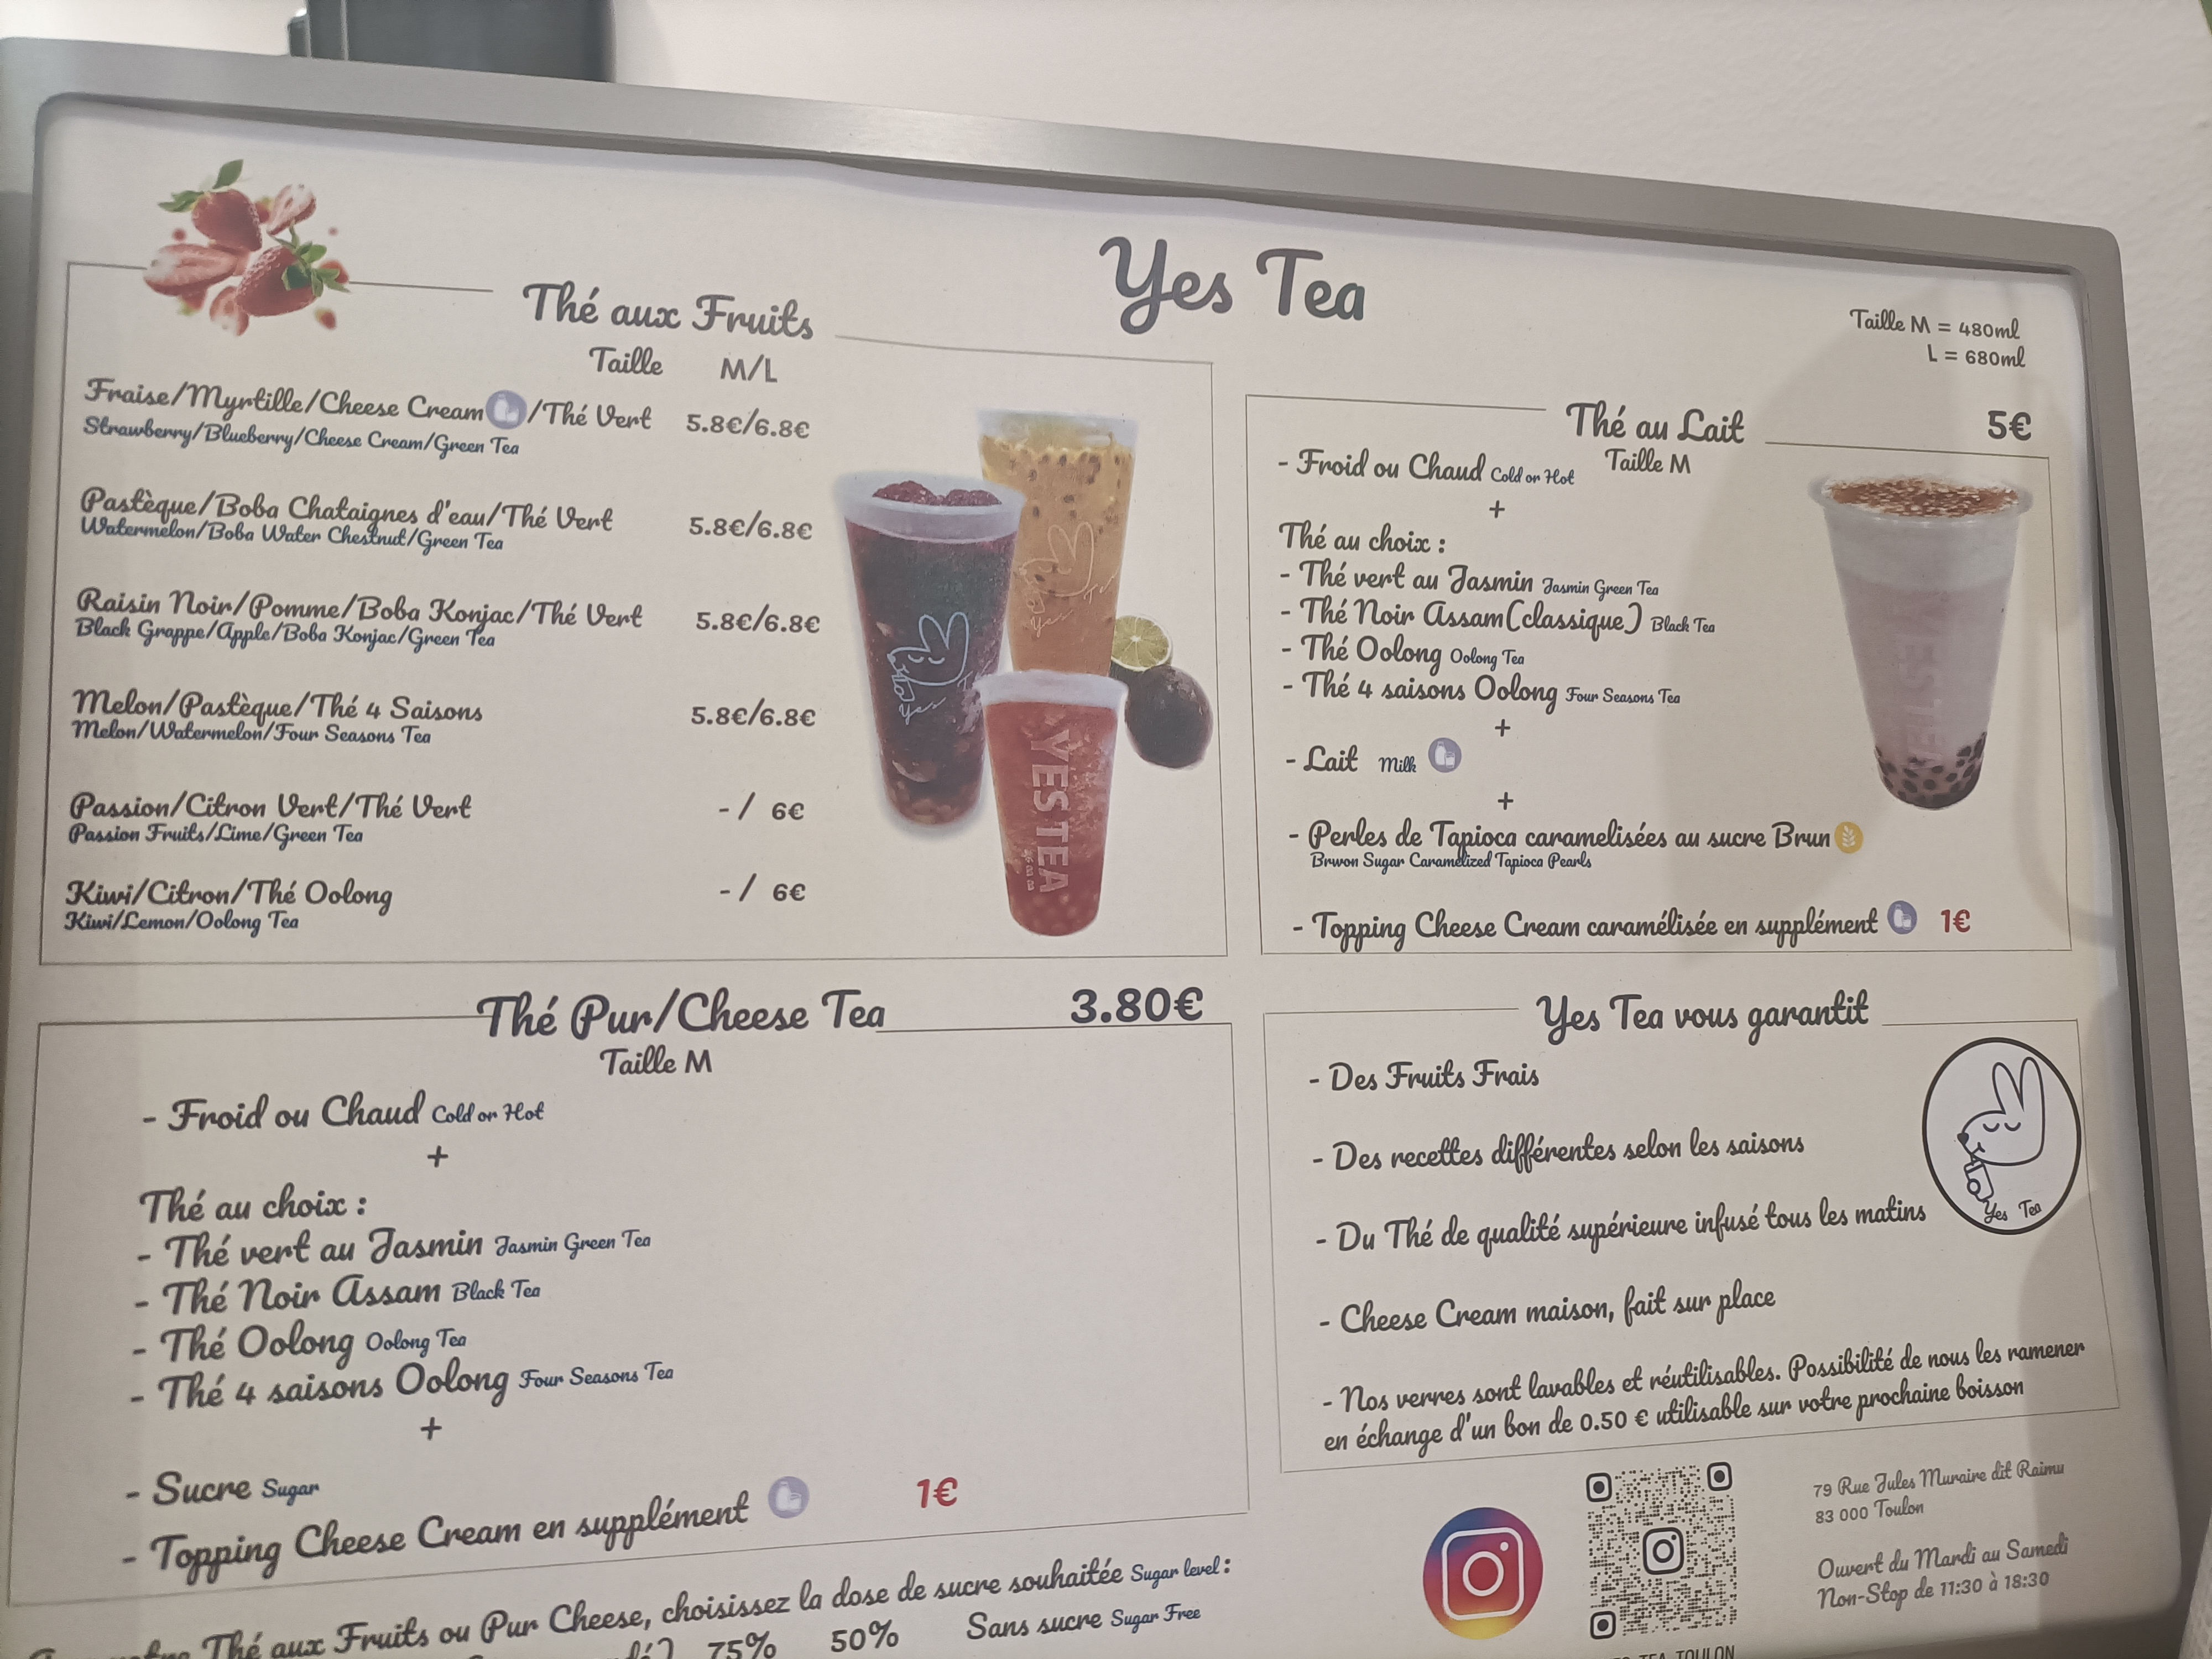 Yes Tea
Taille M = 480ml
L = 680ml
Thé aux Fruits
Taille M/L
Fraise/Myrtille/Cheese Cream/Thé Vert 5.8€/6.8€
Strawberry/Blueberry/Cheese Cream/Green Tea
Pastèque/Boba Chataignes d'eau/Thé Vert 5.8€/6.8€
Watermelon/Boba Water Chestnut/Green Tea
Raisin Noir/Pomme/Boba Konjac/Thé Vert 5.8€/6.8€
Black Grappe/Apple/Boba Konjac/Green Tea
Melon/Pastèque/Thé 4 Saisons 5.8€/6.8€
Melon/Watermelon/Four Seasons Tea
Passion/Citron Vert/Thé Vert - / 6€
Passion Fruits/Lime/Green Tea
Kiwi/Citron/Thé Oolong - / 6€
Kiwi/Lemon/Oolong Tea
Yes
Yes
YES TEA
Thé au Lait 5€
- Froid ou Chaud Cold or Hot Taille M
+
Thé au choix :
- Thé vert au Jasmin Jasmin Green Tea
- Thé Noir Assam(classique) Black Tea
- Thé Oolong Oolong Tea
- Thé 4 saisons Oolong Four Seasons Tea
+
- Lait Milk
+
- Perles de Tapioca caramelisées au sucre Brun
Brwon Sugar Caramelized Tapioca Pearls
- Topping Cheese Cream caramélisée en supplément 1€
YES TEA
Thé Pur/Cheese Tea 3.80€
Taille M
- Froid ou Chaud Cold or Hot
+
Thé au choix :
- Thé vert au Jasmin Jasmin Green Tea
- Thé Noir Assam Black Tea
- Thé Oolong Oolong Tea
- Thé 4 saisons Oolong Four Seasons Tea
+
- Sucre Sugar
- Topping Cheese Cream en supplément 1€
Yes Tea vous garantit
- Des Fruits Frais
- Des recettes différentes selon les saisons
- Du Thé de qualité supérieure infusé tous les matins
- Cheese Cream maison, fait sur place
- Nos verres sont lavables et réutilisables. Possibilité de nous les ramener
en échange d'un bon de 0.50 € utilisable sur votre prochaine boisson
Yes Tea
Thé aux Fruits ou Pur Cheese, choisissez la dose de sucre souhaitée Sugar level :
75% 50% Sans sucre Sugar Free
79 Rue Jules Muraire dit Raimu
83 000 Toulon
Ouvert du Mardi au Samedi
Non-Stop de 11:30 à 18:30
TEA TOULON